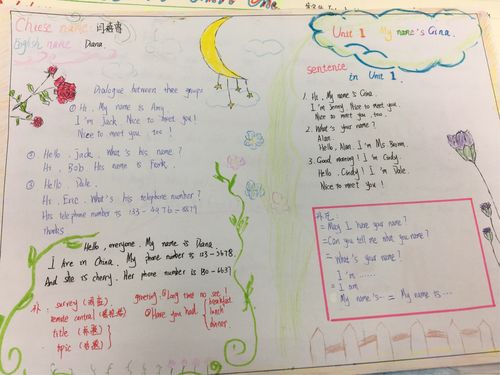 Chiese name 闫
English name Diana.
Dialogue between three groups
① Hi, My name is Amy.
I'm Jack Nice to meet you!
Nice to meet you, too!
② Hello, Jack. What's his name?
Hi, Bob His name is
③ Hello, Dale.
Hi, Eric. What's his telephone number?
His telephone number is
Thanks
Hello, everyone. My name is Diana.
I Are in China. My phone number is 123-5678.
And she is cherry. Her phone number is
补: survey (调查)
remote control (遥控器)
title (标题)
topic (话题)
greeting: ① Long time no see!
② Have you had { breakfast
lunch
dinner
Unit 1 My name's Gina.
sentence
in Unit 1
1. Hi, My name is Gina.
I'm Jenny Nice to meet you.
Nice to meet you, too.
2. What's your name?
Alan.
Hello, Alan. I'm Ms. Brown.
3. Good morning! I'm Cindy.
Hello, Cindy! I'm Dale.
Nice to meet you!
补充:
= May I have your name?
= Can you tell me what you name?
= What's your name?
I'm ......
= I am
My name's... = My name is...